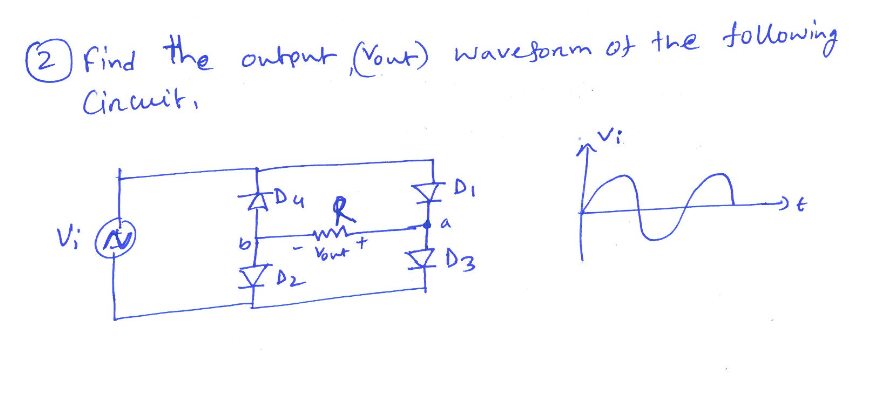 ② Find the output (Vout) waveform of the following
Circuit.
Vi
D4
R
D1
a
b
- Vout +
D2
D3
Vi
t